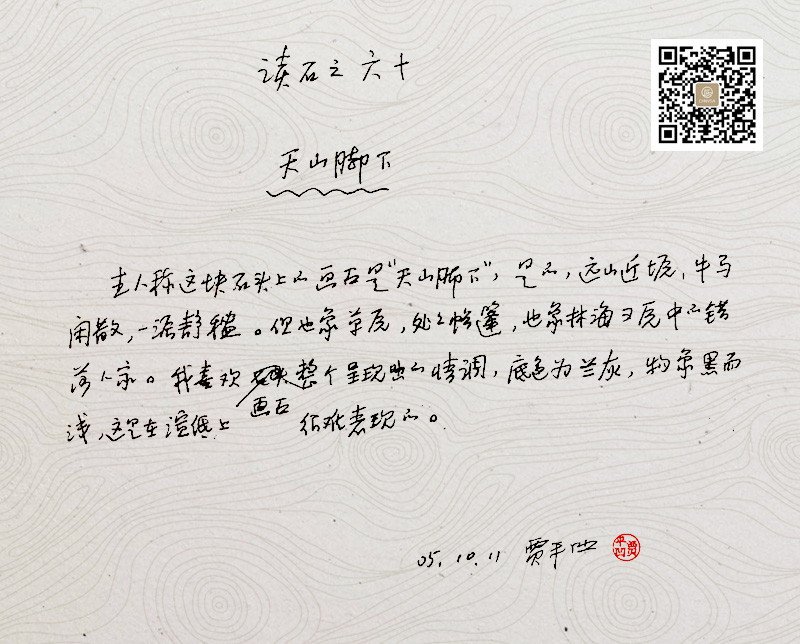 读石之六十
天山脚下
主人称这块石头上的画面是"天山脚下"，是的，远山近坡，牛马
闲散，一派静穆。但也象草原，处处帐篷，也象林海雪原中的错
落人家。我喜欢整个呈现出的情调，底色为兰灰，物象黑而
画面
浅，这是在宣纸上很难表现的。
05.10.11 贾平凹
贾平凹